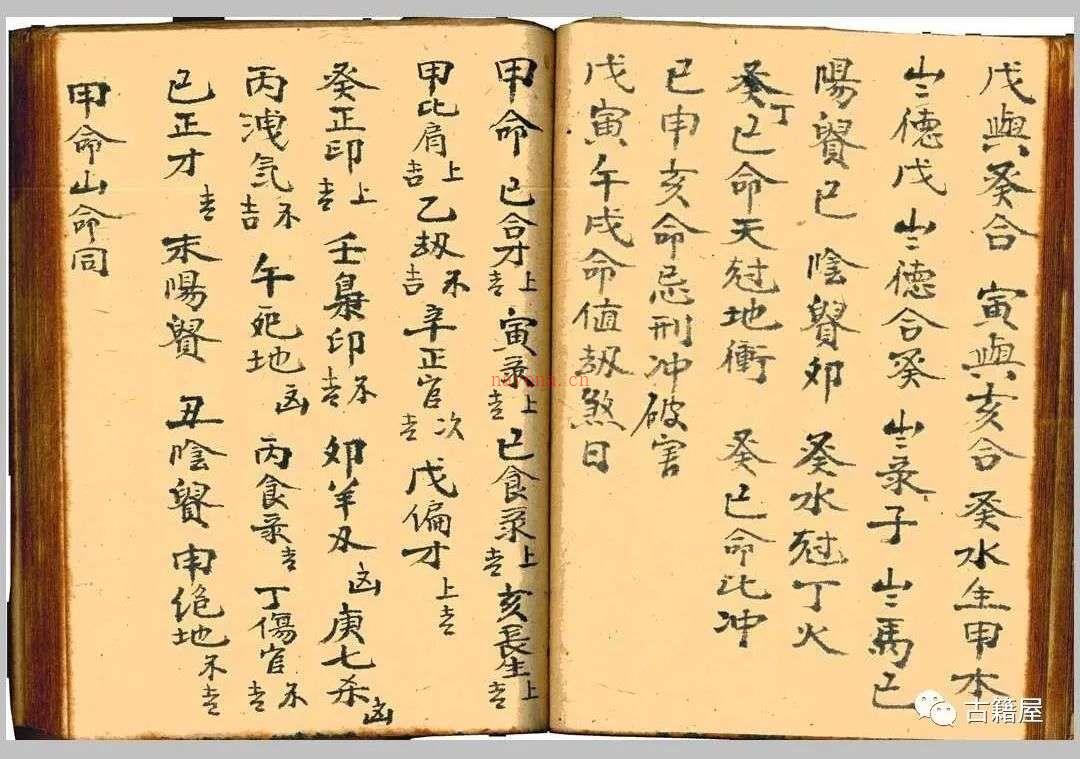 戊與癸合 寅與亥合 癸水生甲本
山德戊 山德合癸 山彔子 山馬巳
陽貿巳 陰貿卯 癸水尅丁火
癸丁巳命天尅地衝 癸巳命比冲
巳申亥命忌刑冲破害
戊寅午戌命值刼煞日
甲命 己合才上吉 寅彔上吉 巳食彔上吉 亥長生上吉
甲比肩上吉 乙刼不吉 辛正官次吉 戊偏才上吉
癸正印上吉 壬梟印不吉 卯羊刄凶 庚七杀凶
丙洩気不吉 午死地凶 丙食彔吉 丁傷官不吉
己正才吉 未陽貿 丑陰貿 申绝地不吉
甲命山命同
古籍屋